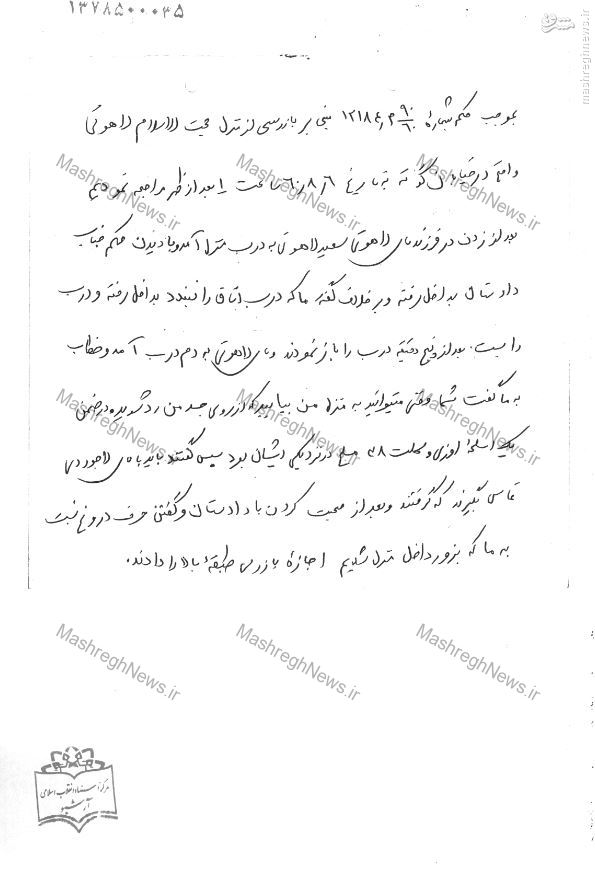 ۱۳۷۸۵۰۰۰۳۵
مشرق
mashreghnews.ir
بموجب حکم شماره مبنی بر بازرسی از منزل حجت الاسلام لاهوتی
واقع در خیابان به تاریخ ۶۰/۸/۶ ساعت بعد از ظهر مراجعه نمودیم
بعد از زدن در فرزند آقای لاهوتی سعید لاهوتی به درب منزل آمد و با دیدن حکم جناب
دادستان به داخل رفته و بر خلاف گفته ما که درب اتاق را نبندد به داخل رفته و درب
را بست. بعد از پنج دقیقه درب را باز نمودند و آقای لاهوتی به دم درب آمد و خطاب
به ما گفت شما وقتی میتوانید به منزل من بیایید که از روی جسد من رد شوید در ضمن
یک اسلحه یوزی و کلت ۳۸ مسلح در نزدیکی ایشان بود سپس گفتند باید با آقای لاجوردی
تماس بگیرند که گرفتند و بعد از صحبت کردن با دادستان و گفتن حرف دروغ نسبت
به ما که بزور داخل منزل شدیم اجازه بازرسی طبقه بالا را دادند.
MashreghNews.ir
MashreghNews.ir
MashreghNews.ir
MashreghNews.ir
MashreghNews.ir
MashreghNews.ir
MashreghNews.ir
MashreghNews.ir
MashreghNews.ir
مرکز اسناد انقلاب اسلامی
آرشیو